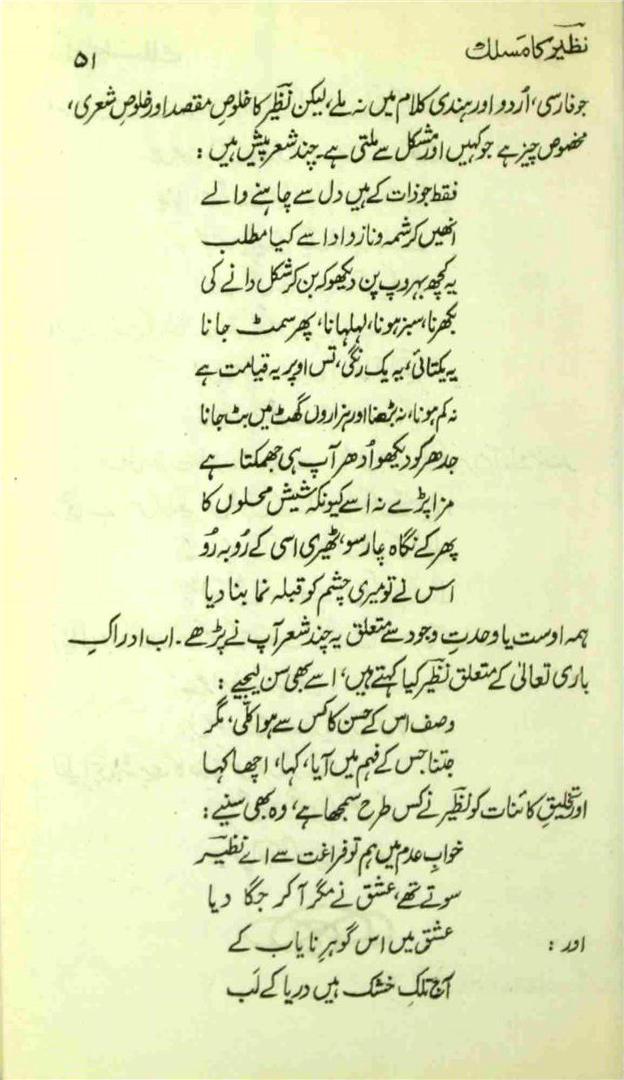 نظیرؔ کا مسلک
۵۱
جو فارسی، اُردو اور ہندی کلام میں نہ ملے، لیکن نظیرؔ کا خلوصِ مقصد اور خلوصِ شعری،
مخصوص چیز ہے جو کہیں اور مشکل سے ملتی ہے۔ چند شعر پیش ہیں:
فقط جو ذات کے ہیں دل سے چاہنے والے
انھیں کرشمہ و ناز و ادا سے کیا مطلب
یہ کچھ بہروپ پن دیکھو کہ بن کر شکل دانے کی
بکھرنا، سبز ہونا، لہلہانا، پھر سمٹ جانا
یہ یکتائی، یہ یک رنگی، تس اوپر یہ قیامت ہے
نہ کم ہونا، نہ بڑھنا اور ہزاروں گھٹ میں بٹ جانا
جدھر کو دیکھو اُدھر آپ ہی جھمکتا ہے
مزا پڑے نہ اسے کیونکہ شیش محلوں کا
پھر کے نگاہ چار سو، ٹھیری اسی کے رُو بہ رُو
اس نے تو میری چشم کو قبلہ نما بنا دیا
ہمہ اوست یا وحدتِ وجود سے متعلق یہ چند شعر آپ نے پڑھے۔ اب ادراکِ
باری تعالیٰ کے متعلق نظیرؔ کیا کہتے ہیں، اسے بھی سن لیجیے:
وصف اس کے حسن کا کس سے ہوا کلّی، مگر
جتنا جس کے فہم میں آیا، کہا، اچھا کہا
اور تخلیقِ کائنات کو نظیرؔ نے کس طرح سمجھا ہے، وہ بھی سنیے:
خوابِ عدم میں ہم تو فراغت سے اے نظیرؔ
سوتے تھے، عشق نے مگر آ کر جگا دیا
اور: عشق میں اس گوہرِ نایاب کے
آج تلک خشک ہیں دریا کے لَب